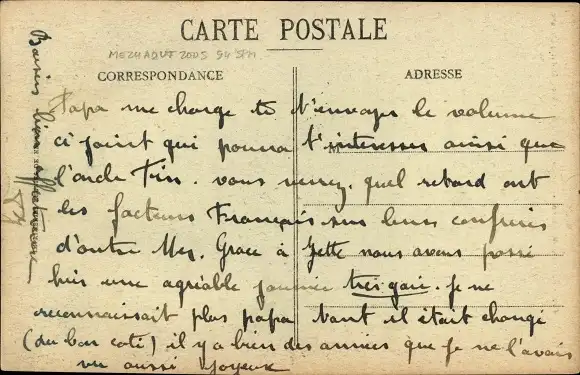 CARTE POSTALE
CORRESPONDANCE
ADRESSE
Papa me charge de t'envoyer le volume
ci joint qui pourra t'interesser ainsi que
l'oncle Tin. vous verrez quel retard ont
les facteurs Français sur leurs confreres
d'outre Mer. Grace à Yette nous avons passé
hier une agréable journée très gaie. Je ne
reconnaissait plus papa tant il était changé
(du bon coté) il y a bien des années que je ne l'avais
vu aussi joyeux
Baisers bien affectueux